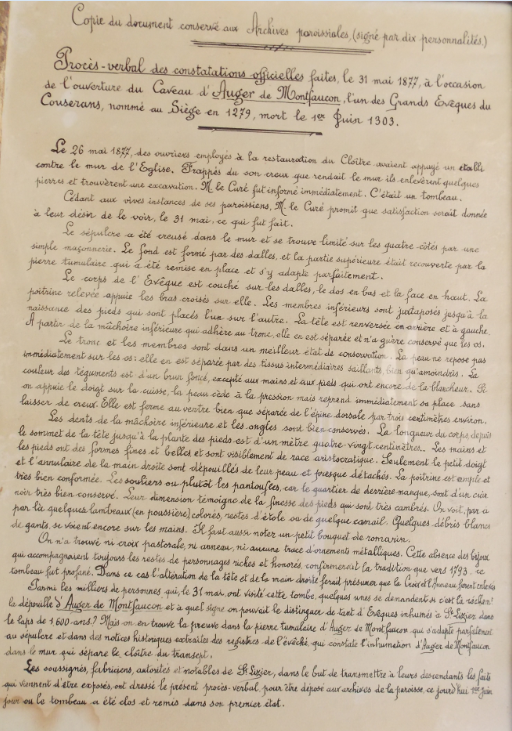 Copie du document conservé aux Archives paroissiales, (signé par dix personnalités)
Procès-verbal des constatations officielles faites, le 31 mai 1877, à l'occasion
de l'ouverture du Caveau d'Auger de Montfaucon, l'un des Grands Evêques du
Couserans, nommé au Siège en 1279, mort le 1er Juin 1303.
Le 26 mai 1877, des ouvriers employés à la restauration du Cloître avaient appuyé un établi
contre le mur de l'Eglise. Frappés du son creux que rendait le mur ils enlevèrent quelques
pierres et trouvèrent une excavation. M. le Curé fut informé immédiatement. C'était un tombeau.
Cédant aux vives instances de ses paroissiens, M. le Curé promit que satisfaction serait donnée
à leur désir de le voir, le 31 mai, ce qui fut fait.
Le sépulcre a été creusé dans le mur et se trouve limité sur les quatre côtés par une
simple maçonnerie. Le fond est formé par des dalles, et la partie supérieure était recouverte par la
pierre tumulaire qui a été remise en place et s'y adapte parfaitement.
Le corps de l'Evêque est couché sur les dalles, le dos en bas et la face en haut. La
poitrine relevée appuie les bras croisés sur elle. Les membres inférieurs sont juxtaposés jusqu'à la
naissance des pieds qui sont placés l'un sur l'autre. La tête est renversée en arrière et à gauche.
A partir de la mâchoire inférieure qui adhère au tronc, elle en est séparée et n'a guère conservé que les os.
Le tronc et les membres sont dans un meilleur état de conservation. La peau ne repose pas
immédiatement sur les os: elle en est séparée par des tissus intermédiaires saillants, bien qu'amoindris. La
couleur des téguments est d'un brun foncé, excepté aux mains et aux pieds qui ont encore de la blancheur. Si
on appuie le doigt sur la cuisse, la peau cède à la pression mais reprend immédiatement sa place sans
laisser de creux. Elle est ferme au ventre bien que séparée de l'épine dorsale par trois centimètres environ.
Les dents de la mâchoire inférieure et les ongles sont bien conservés. La longueur du corps depuis
le sommet de la tête jusqu'à la plante des pieds est d'un mètre quatre-vingt centimètres. Les mains et
les pieds ont des formes fines et belles et sont visiblement de race aristocratique. Seulement le petit doigt
et l'annulaire de la main droite sont dépouillés de leur peau et presque détachés. La poitrine est ample et
très bien conformée. Les souliers ou plutôt les pantoufles, car le quartier de derrière manque, sont d'un cuir
noir très bien conservé. Leur dimension témoigne de la finesse des pieds qui sont très cambrés. On voit, par ci
par là quelques lambeaux (en poussière) colorés, restes d'étole ou de quelque camail. Quelques débris blancs
de gants, se voient encore sur les mains. Il faut aussi noter un petit bouquet de romarin.
On n'a trouvé ni croix pastorale, ni anneau, ni aucune trace d'ornements métalliques. Cette absence des bijoux
qui accompagnaient toujours les restes de personnages riches et honorés, confirmerait la tradition que vers 1793. ce
tombeau fut profané. Dans ce cas l'altération de la tête et de la main droite ferait présumer que la Croix et l'Anneau furent enlevés
Parmi les milliers de personnes qui, le 31 mai, ont visité cette tombe, quelques unes se demandent si c'est là réellement
la dépouille d'Auger de Montfaucon et à quel signe on pouvait le distinguer de tant d'Evêques inhumés à St Lizier dans
le laps de 1.600 ans? Mais on en trouve la preuve dans la pierre tumulaire d'Auger de Montfaucon qui s'adapte parfaitement
au sépulcre et dans des notices historiques extraites des registres de l'évêché, qui constate l'inhumation d'Auger de Montfaucon
dans le mur qui sépare le cloître du transept.
Les soussignés, fabriciens, autorités et notables de St Lizier, dans le but de transmettre à leurs descendants les faits
qui viennent d'être exposés, ont dressé le présent procès-verbal pour être déposé aux archives de la paroisse, ce jourd'hui 1er Juin
jour où le tombeau a été clos et remis dans son premier état.